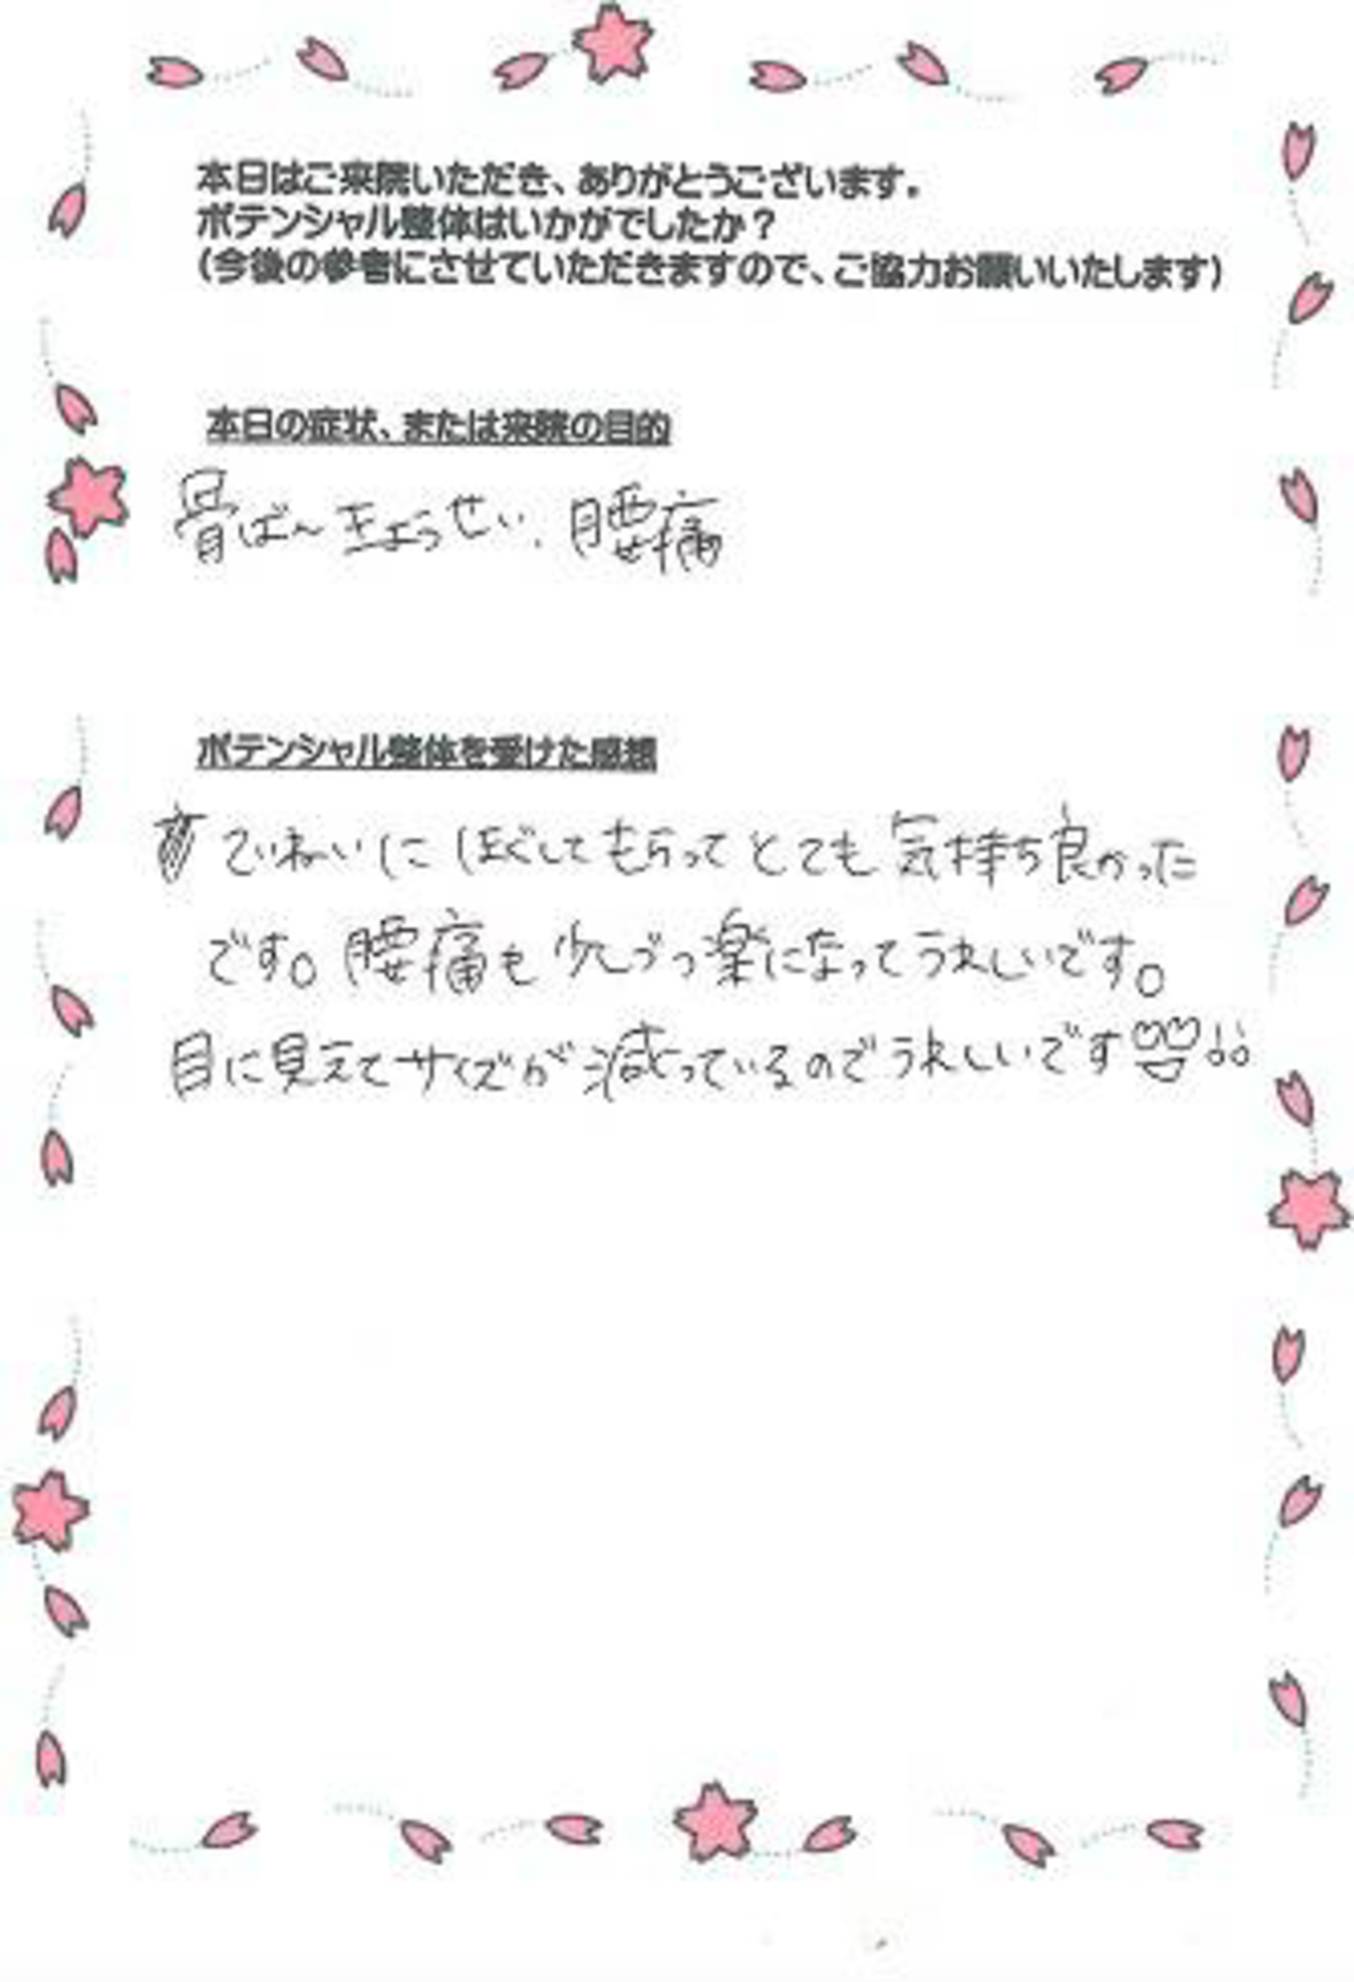 本日はご来院いただき、ありがとうございます。
ポテンシャル整体はいかがでしたか？
（今後の参考にさせていただきますので、ご協力お願いいたします）
本日の症状、または来院の目的
骨ばんきょうせい、腰痛
ポテンシャル整体を受けた感想
ていねいにほぐしてもらってとても気持ち良かった
です。腰痛も少しづつ楽になってうれしいです。
目に見えてサイズが減っているのでうれしいです!!